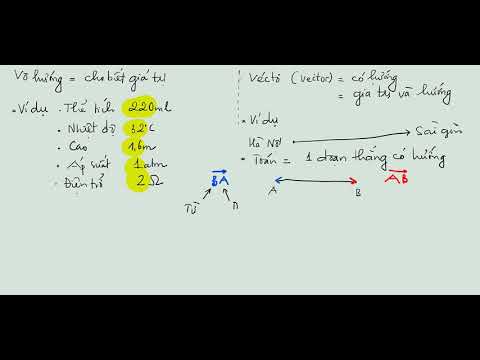 Vô hướng = cho biết giá trị
• Ví dụ • Thể tích 220ml
• Nhiệt độ 32°C
• Cao 1,6m
• Áp suất 1atm
• Điện trở 2Ω
Véctơ (vector) = có hướng
= giá trị và hướng
• Ví dụ
Hà Nội → Sài gòn
• Toán = 1 đoạn thẳng có hướng
BA
Từ
A B
AB